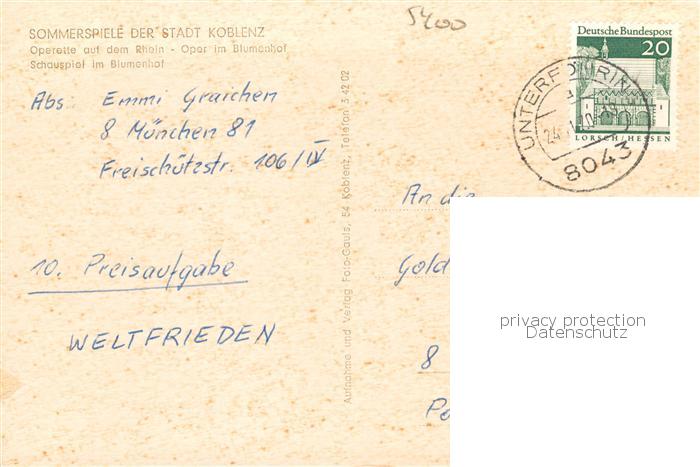 SOMMERSPIELE DER STADT KOBLENZ
Operette auf dem Rhein - Oper im Blumenhof
Schauspiel im Blumenhof
5400
Deutsche Bundespost
20
LORSCH/HESSEN
UNTERFÖHRING
8043
Abs. Emmi Graichen
8 München 81
Freischützstr. 106/IV
10. Preisaufgabe
WELTFRIEDEN
Aufnahme und Verlag Foto-Gauls, 54 Koblenz, Telefon 3 42 02
An die
Gold
8
Po
privacy protection
Datenschutz